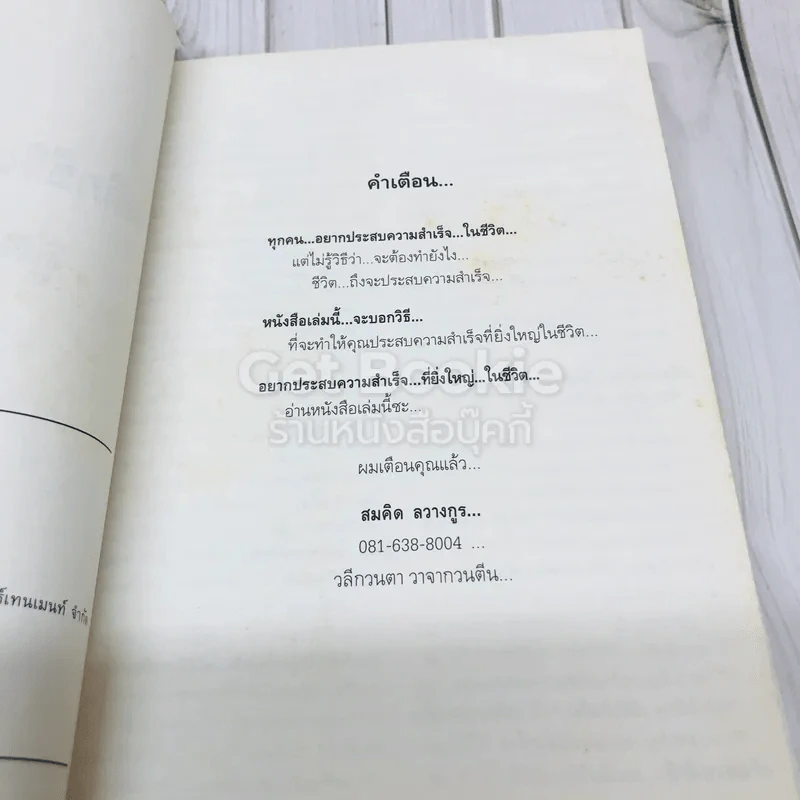 คำเตือน...
ทุกคน...อยากประสบความสำเร็จ...ในชีวิต...
แต่ไม่รู้วิธีว่า...จะต้องทำยังไง...
ชีวิต...ถึงจะประสบความสำเร็จ...
หนังสือเล่มนี้...จะบอกวิธี...
ที่จะทำให้คุณประสบความสำเร็จที่ยิ่งใหญ่ในชีวิต...
Get Bookie
อยากประสบความสำเร็จ...ที่ยิ่งใหญ่...ในชีวิต...
อ่านหนังสือเล่มนี้ซะ...
ร้านหนังสือบุ๊คกี้
ผมเตือนคุณแล้ว...
สมคิด ลวางกูร...
081-638-8004 ...
วลีกวนตา วาจากวนตีน...
ร์เทนเมนท์ จำกัด